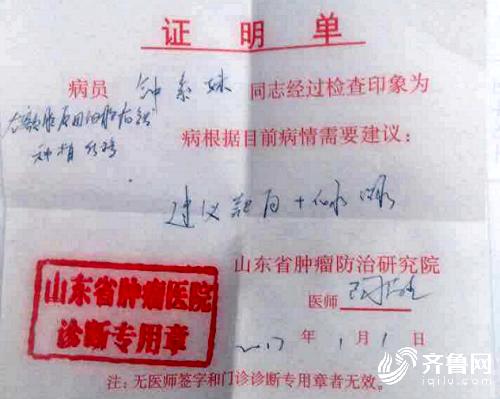 证明单
病员 钟 同志经过检查印象为
病根据目前病情需要建议：
建议
山东省肿瘤防治研究院
医师
山东省肿瘤医院
诊断专用章
2017 年 1 月 1 日
注：无医师签字和门诊诊断专用章者无效。
齐鲁网
iqilu.com